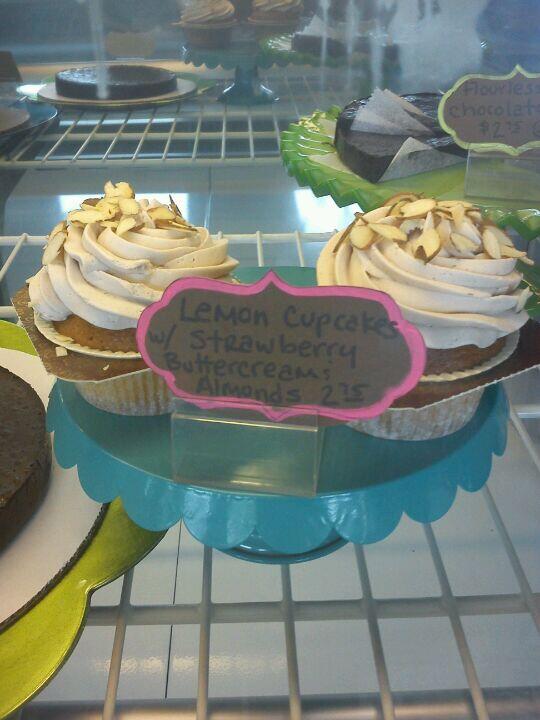 Flourless
chocolate
$2.75
Lemon Cupcakes
w/ Strawberry
Buttercream &
Almonds 2.75